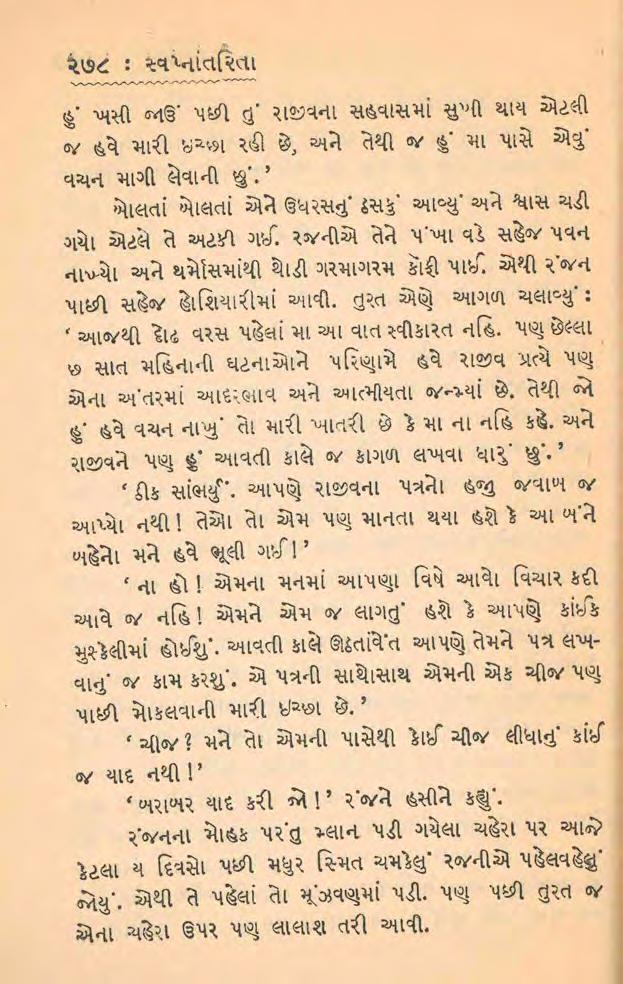 ૨૭૮ : સ્વપ્નાંતરિતા
હું ખસી જાઉં પછી તું રાજીવના સહવાસમાં સુખી થાય એટલી
જ હવે મારી ઇચ્છા રહી છે, અને તેથી જ હું મા પાસે એવું
વચન માગી લેવાની છું.’
બોલતાં બોલતાં એને ઉધરસનું ઠસકું આવ્યું અને શ્વાસ ચડી
ગયો એટલે તે અટકી ગઈ. રજનીએ તેને પંખા વડે સહેજ પવન
નાખ્યો અને થર્મોસમાંથી થોડી ગરમાગરમ કૉફી પાઈ. એથી રંજન
પાછી સહેજ હોશિયારીમાં આવી. તુરત એણે આગળ ચલાવ્યું :
‘ આજથી દોઢ વરસ પહેલાં મા આ વાત સ્વીકારત નહિ. પણ છેલ્લા
છ સાત મહિનાની ઘટનાઓને પરિણામે હવે રાજીવ પ્રત્યે પણ
એના અંતરમાં આદરભાવ અને આત્મીયતા જન્મ્યાં છે. તેથી જો
હું હવે વચન નાખું તો મારી ખાતરી છે કે મા ના નહિ કહે. અને
રાજીવને પણ હું આવતી કાલે જ કાગળ લખવા ધારું છું.’
‘ ઠીક સાંભર્યું. આપણે રાજીવના પત્રનો હજી જવાબ જ
આપ્યો નથી! તેઓ તો એમ પણ માનતા થયા હશે કે આ બંને
બહેનો મને હવે ભૂલી ગઈ!’
‘ ના હો! એમના મનમાં આપણા વિષે આવો વિચાર કદી
આવે જ નહિ! એમને એમ જ લાગતું હશે કે આપણે કાંઈક
મુશ્કેલીમાં હોઈશું. આવતી કાલે ઊઠતાંવેંત આપણે તેમને પત્ર લખ-
વાનું જ કામ કરશું. એ પત્રની સાથોસાથ એમની એક ચીજ પણ
પાછી મોકલવાની મારી ઇચ્છા છે.’
‘ ચીજ? મને તો એમની પાસેથી કોઈ ચીજ લીધાનું કાંઈ
જ યાદ નથી!’
‘ બરાબર યાદ કરી જો!’ રંજને હસીને કહ્યું.
રંજનના મોહક પરંતુ મ્લાન પડી ગયેલા ચહેરા પર આજે
કેટલા ય દિવસો પછી મધુર સ્મિત ચમકેલું રજનીએ પહેલવહેલું
જોયું. એથી તે પહેલાં તો મૂંઝવણમાં પડી. પણ પછી તુરત જ
એના ચહેરા ઉપર પણ લાલાશ તરી આવી.